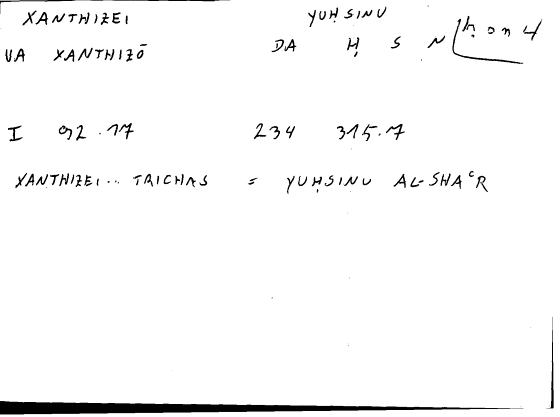 XANTHIZEI YUḤSINU
VA XANTHIZŌ DA Ḥ S N ḥ on 4
I 92.17 234 315.7
XANTHIZEI... TRICHAS = YUḤSINU AL-SHAᶜR